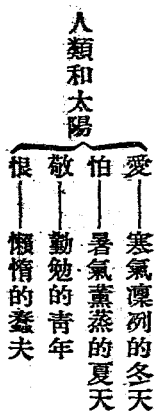 人類和太陽
愛——寒氣凜冽的冬天
怕——暑氣薰蒸的夏天
敬——勤勉的青年
恨——懶惰的蠢夫